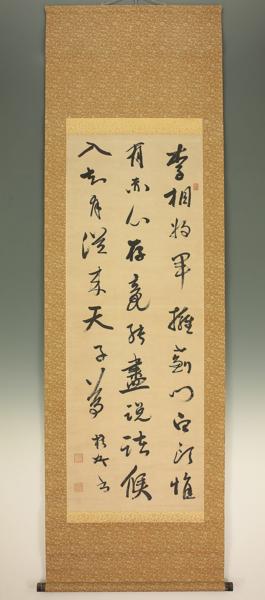 李相将軍擁薊門白頭惟
有赤心存竟能盡説諸侯
入知有従来天子尊